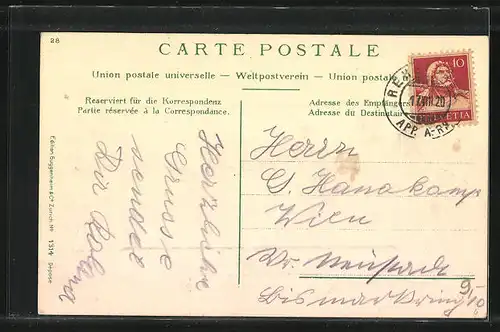 28
CARTE POSTALE
Union postale universelle — Weltpostverein — Union postale
Reserviert für die Korrespondenz
Partie réservée à la Correspondance.
Adresse des Empfängers
Adresse du Destinatair
10
HELVETIA
20
APP. A-RH
Herzliche
Grüsse
sendet
Dir
Herrn
G. Hanakamp
Wien
Wr. Neustadt
Bismarkring 9/10
Edition Guggenheim & Co Zürich No 1314 Déposé